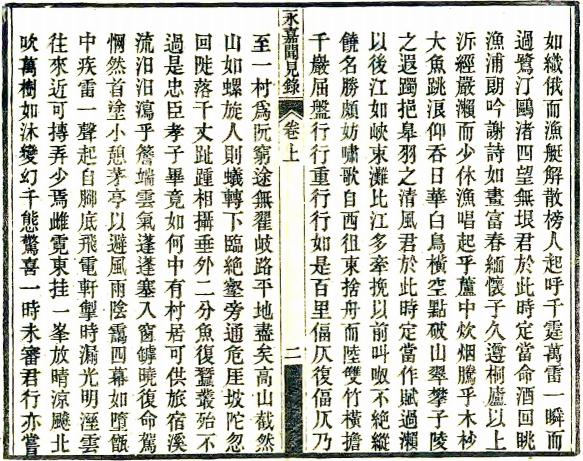 如織俄而漁艇解散榜人起呼千霆萬雷一瞬而
過鷺汀鷗渚四望無垠君於此時定當命酒回眺
漁浦朗吟謝詩如畫富春緬懷子久邇桐廬以上
泝經嚴瀨而少休漁唱起乎蘆中炊烟騰乎木杪
大魚跳浪仰呑日華白鳥橫空點破山翠攀子陵
之遐躅挹皋羽之清風君於此時定當作賦過瀨
以後江如峽束灘比江多牽挽以前叫呶不絕縱
饒名勝頗妨嘯歌自西徂東捨舟而陸雙竹橫擔
千巖屈盤行行重行行如是百里偪仄復偪仄乃
永嘉聞見錄
卷上
二
至一村爲阮窮途無翟岐路平地盡矣高山截然
山如螺旋人則蟻轉下臨絕壑旁通危厓坡陀忽
回陡落千丈趾踵相攝垂外二分魚復蠶叢殆不
過是忠臣孝子畢竟如何中有村居可供旅宿溪
流汨汨瀉乎簷端雲氣蓬蓬塞入窗罅曉復命駕
惘然首塗小憩茅亭以避風雨陰靄四幕如墮甑
中疾雷一聲起自腳底飛電軒掣時漏光明溼雲
往來近可摶弄少焉雌霓東挂一峯放晴涼颸北
吹萬樹如沐變幻千態驚喜一時未審君行亦嘗